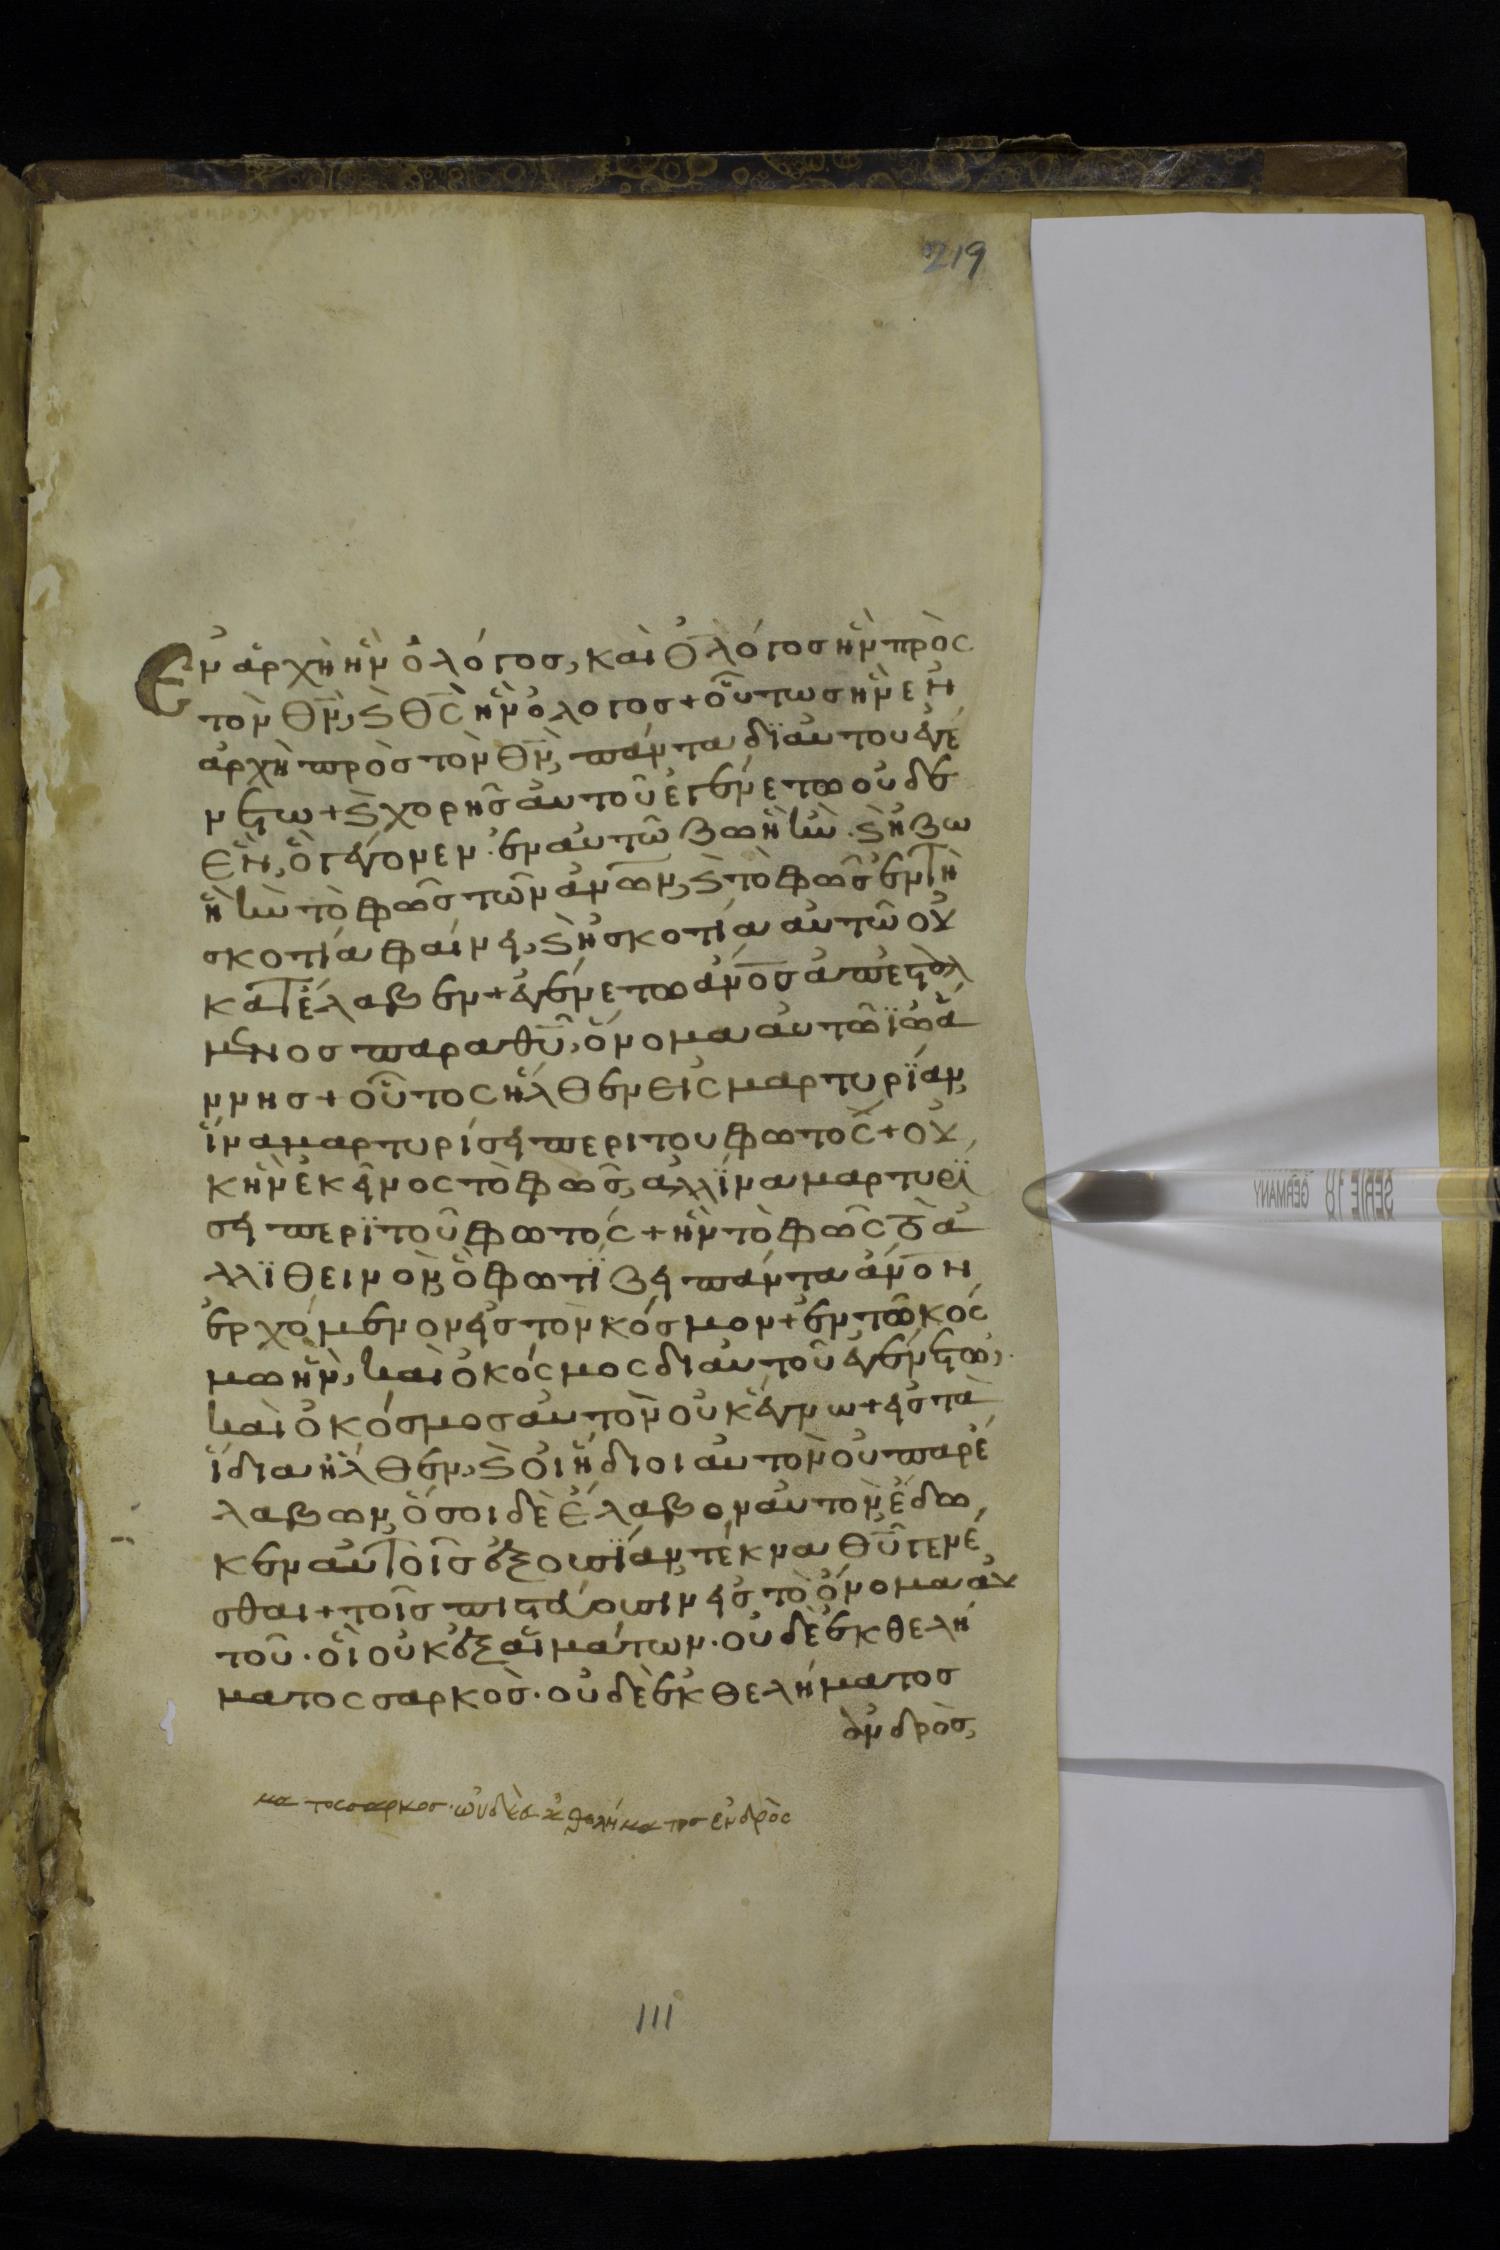 219
Ἐν ἀρχῆ ἦν ὁ λόγος, καὶ ὁ λόγος ἦν πρὸς
τὸν θν, ϗ θς ἦν ὁ λογος + οὗτως ἦν ἐν
ἀρχῆ πρὸς τὸν θν, πάντα δϊαυτου ἐγέ
νετω + ϗ χορῆς αυτοῦ ἐγένετω οὐδὲ
ἓν, ὃ γέγονεν · ἐν αὐτῶ ζωὴ ἦν · ϗ ἡ ζω
ὴ ἦν τὸ φῶς τῶν ἀνων, ϗ τὸ φῶς ἐν τῆ
σκοτία φαίνει, ϗ ἡ σκοτία αὐτῶ οὐ
κατέλαβεν + ἐγένετω ἀνος ἀπεσταλ
μένος παρα θυ, ὄνομα αὐτῶ ϊωά
ννης + οὗτος ἦλθεν εις μαρτυρϊαν,
ἵνα μαρτυρίσει περι του φωτος + οὐ
κ ἦν ἐκεῖνος τὸ φῶς, ἀλλ ϊνα μαρτυρϊ
σει περϊ τοῦ φωτος + ἦν τὸ φῶς τὸ ἀ
λλϊθεινον, ὃ φωτϊζει πάντα ἀνον
ἐρχόμενον εἰς τὸν κόσμον + ἐν τῶ κόσ
μω ἦν, καὶ ὁ κόσμος διαυτοῦ ἐγένετω,
καὶ ὁ κόσμος αυτὸν οὐκ ἔγνω + εἰς τὰ
ἴδια ἦλθεν, ϗ ὁι ἤδιοι αυτον οὐ παρέ
λαβων, ὅσοι δὲ ἔλαβον αυτον, ἔδω
κεν αυτοῖς ἐξουσϊαν τέκνα θυ γενέ
σθαι + τοῖς πιστέυουσιν εἰς τὸ ὄνομα αὐ
τοῦ · ὃι οὐκ ἐξ αἵματων · οὐδὲ ἐκ θελή
ματος σαρκὸς · οὐδὲ ἐκ θελήματος
ὰνδρὸς,
ματος σαρκος · ὠυδὲ ἐκ θελήματος ἐνδρὸς
111
SERIE 18 GERMANY